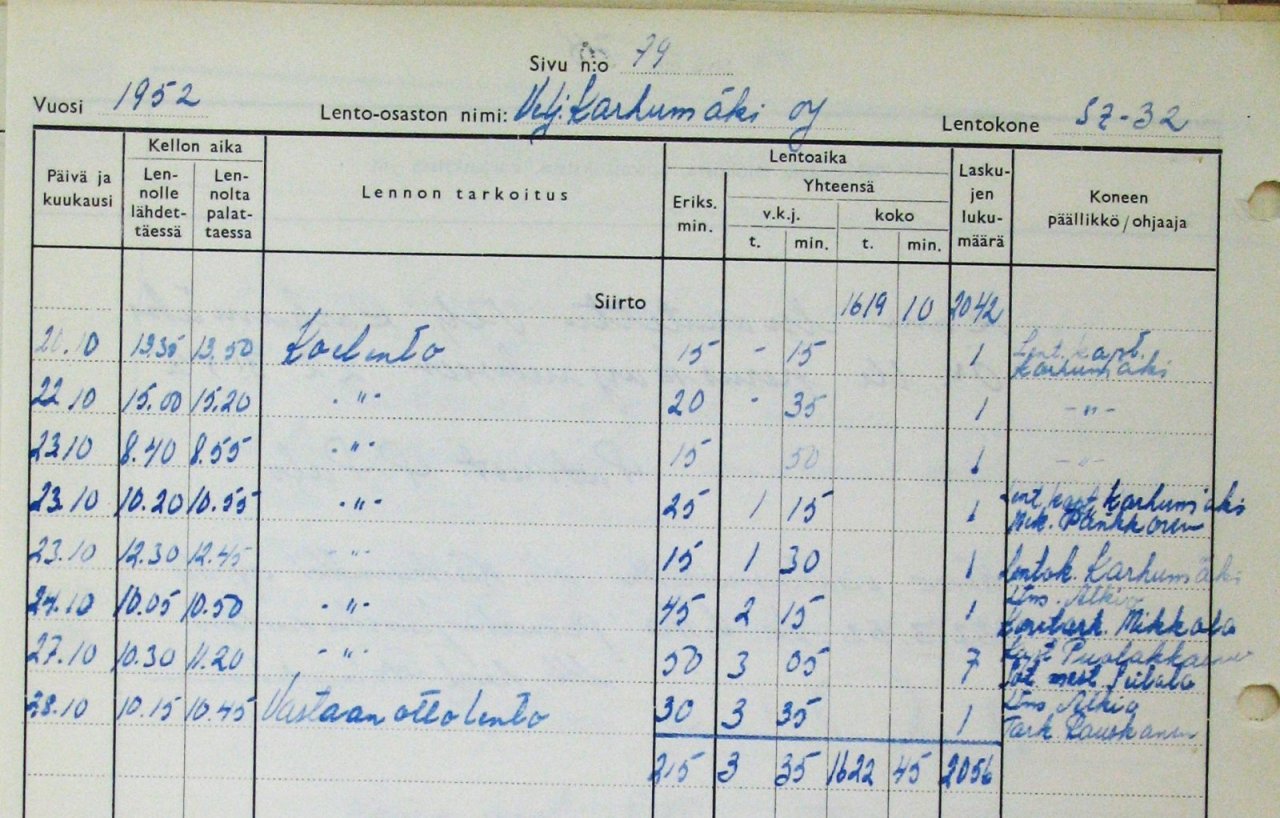 Sivu n:o 79
Vuosi 1952 Lento-osaston nimi: Velj. Karhumäki oy Lentokone SZ-32
Päivä ja kuukausi Kellon aika Lennolle lähdettäessä Lennolta palattaessa Lennon tarkoitus Lentoaika Eriks. min. Yhteensä v.k.j. t. min. koko t. min. Laskujen lukumäärä Koneen päällikkö/ohjaaja
Siirto 1619 10 2042
.10 13.35 13.50 Koelento 15 - 15 1 Lent. kapt. Karhumäki
22.10 15.00 15.20 -"- 20 - 35 1 -"-
23.10 8.40 8.55 -"- 15 50 1 -"-
23.10 10.20 10.55 -"- 25 1 15 1 Lent. kapt. Karhumäki
Mek.
23.10 12.30 12.45 -"- 15 1 30 1 Lentok. Karhumäki
24.10 10.05 10.50 -"- 45 2 15 1 Ltns. Alkio
Mikkola
27.10 10.30 11.20 -"- 50 3 05 7 Kapt. Puolakkainen
28.10 10.15 10.45 Vastaanottolento 30 3 35 1 Ltns Alkio
Tark. Rauskanen
215 3 35 1622 45 2056